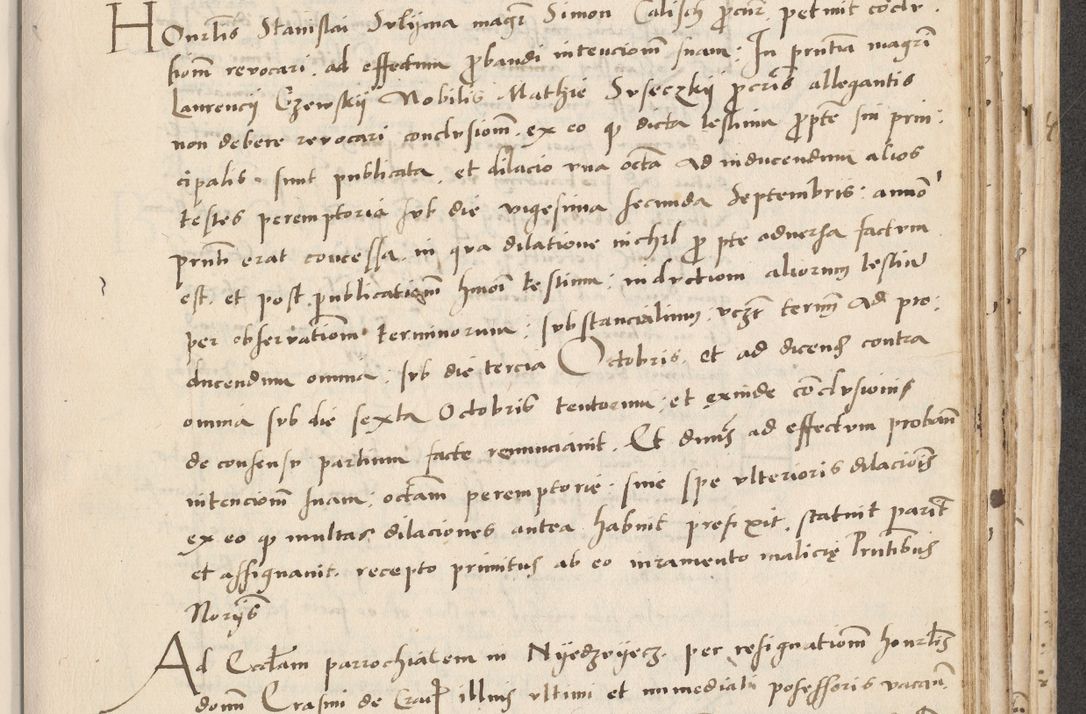 Honrlis Stanislai Sulijma magr Simon Calisch procur petiuit coclu
sionem reuocari ad effectum probandi intencionem suam In pntia magri
Laurencij Gzewskij Nobilis Mathie Suseczkij procris allegantis
non debere reuocari conclusionem ex eo quod dicta testium propte sui prin
cipalis sunt publicata et dilacio una octa Ad inducendum alios
testes peremptoria sub die vigesima secunda Septembris anno
pnti erat concessa in qua dilatione nichil pro pte aduersa factum
est et post publicationem hmoi testium inductiom aliorum testium
per obseruationem terminorum substancialium vczt termin Ad pro
ducendum omnia sub die tercia Octobris et ad dicend contra
omnia sub die sexta Octobris tentorum et exinde conclusionis
de consensu partium facte renunciauit Et dnus ad effectum probam
intencionem suam octam peremptorie sine spe vlterioris dilacionis
ex eo quod multas dilaciones antea habuit prefixit statuit parit
et assignauit recepto primitus ab eo iuramento malicię Pntibus
Norijs
Ad Eccliam parrochialem in Nijedzvijecz per resignationem honrlis
domni Erasmi de Crac illius vltimi et immediati possessoris vacan